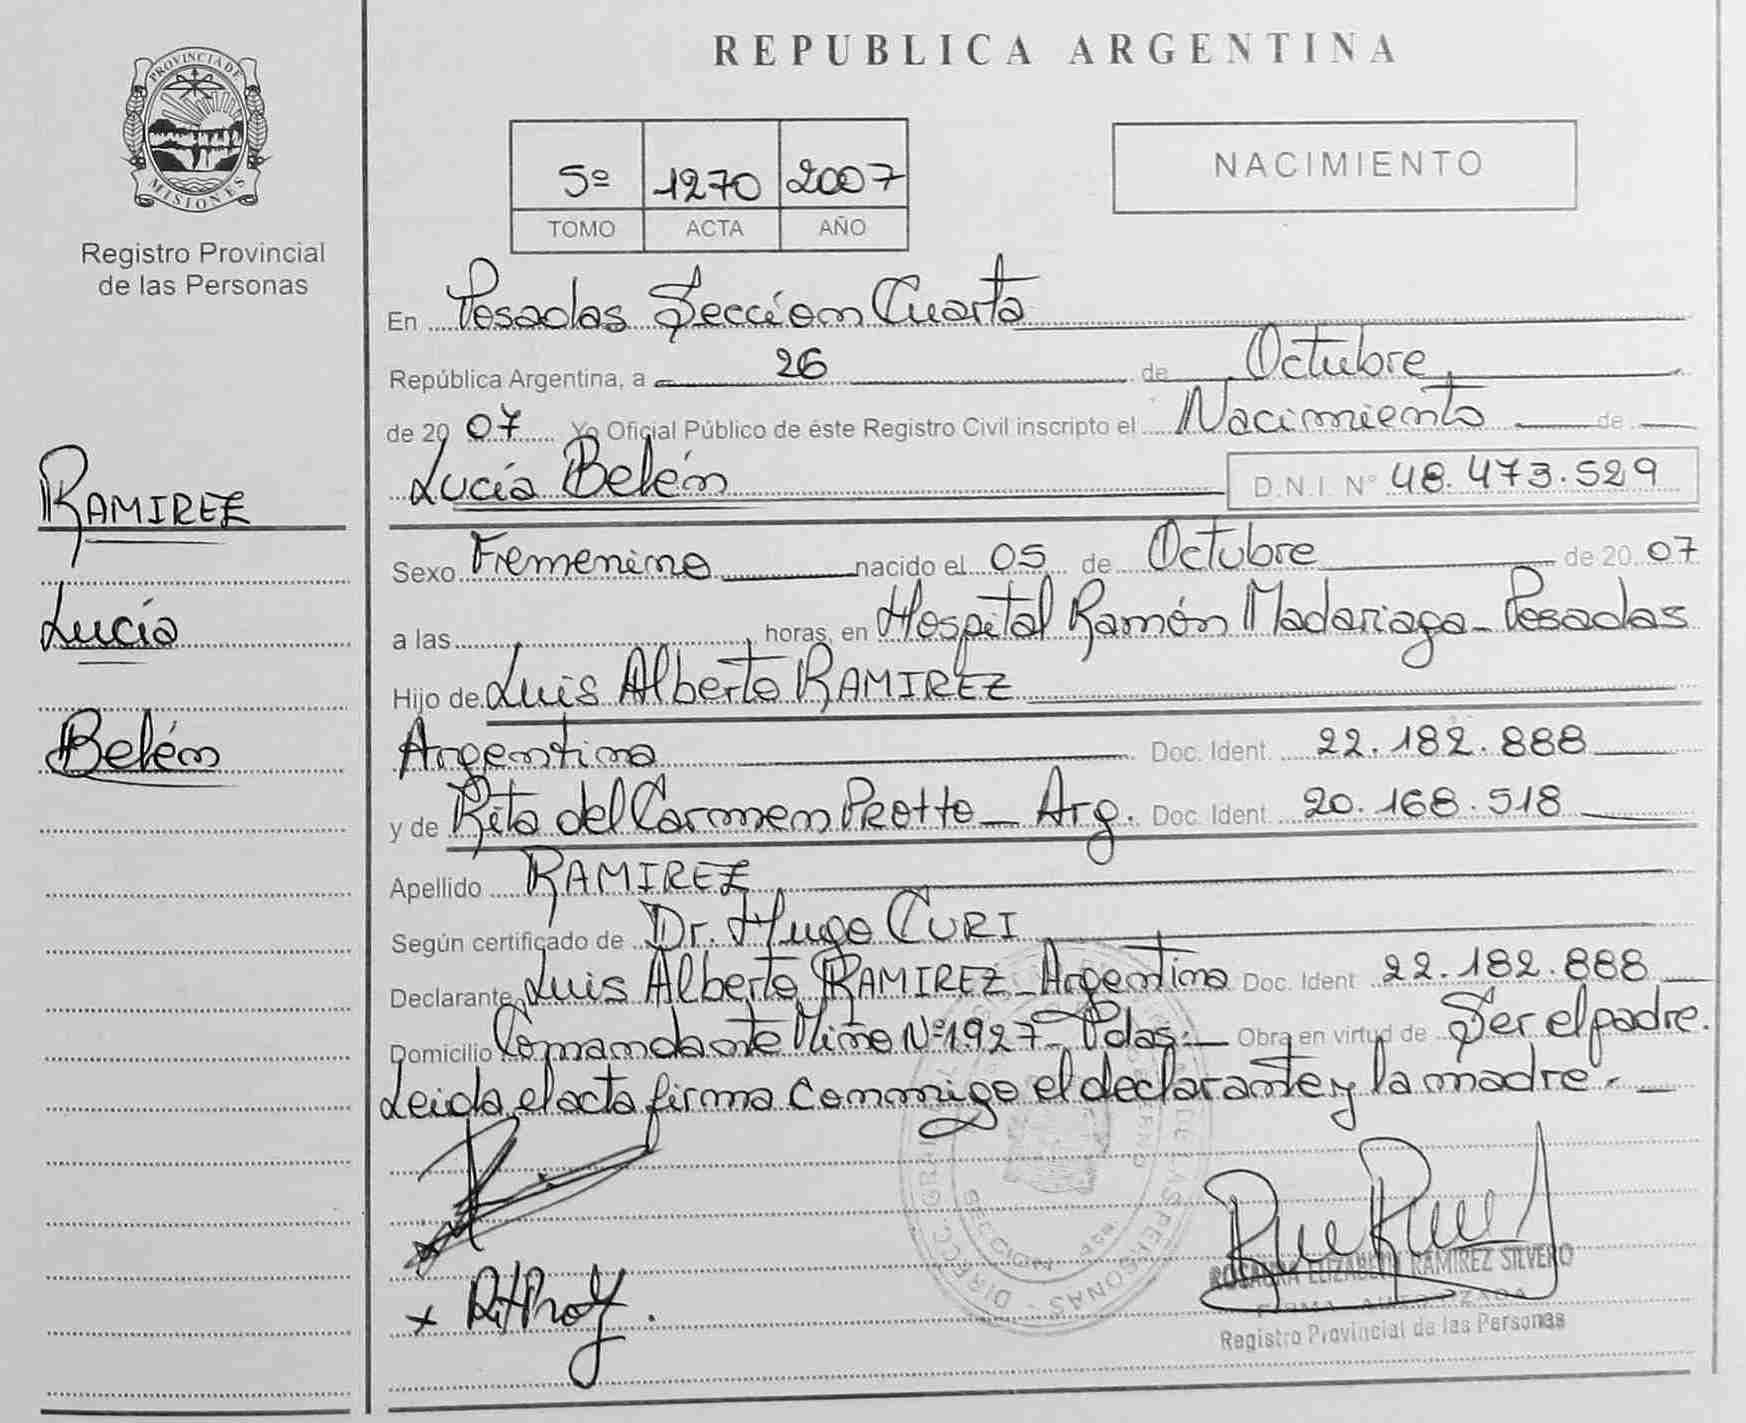 PROVINCIA DE
MISIONES
Registro Provincial
de las Personas
RAMIREZ
Lucía
Belén
REPUBLICA ARGENTINA
5º 1270 2007
TOMO ACTA AÑO
NACIMIENTO
En Posadas Sección Cuarta
República Argentina, a 26 de Octubre
de 2007 Yo Oficial Público de éste Registro Civil inscripto el Nacimiento de
Lucía Belén D.N.I. Nº 48.473.529
Sexo Femenino nacido el 05 de Octubre de 2007
a las horas, en Hospital Ramón Madariaga - Posadas
Hijo de Luis Alberto RAMIREZ
Argentino Doc. Ident. 22.182.888
y de Rita del Carmen PROTTO - Arg. Doc. Ident. 20.168.518
Apellido RAMIREZ
Según certificado de Dr. Hugo CURI
Declarante Luis Alberto RAMIREZ - Argentino Doc. Ident 22.182.888
Domicilio Comandante Miño Nº 1927 - Pdas. - Obra en virtud de Ser el padre.
Leida el acta firma conmigo el declarante y la madre. -
ROSAURA ELIZABETH RAMIREZ SILVERO
FIRMA AUTORIZADA
Registro Provincial de las Personas